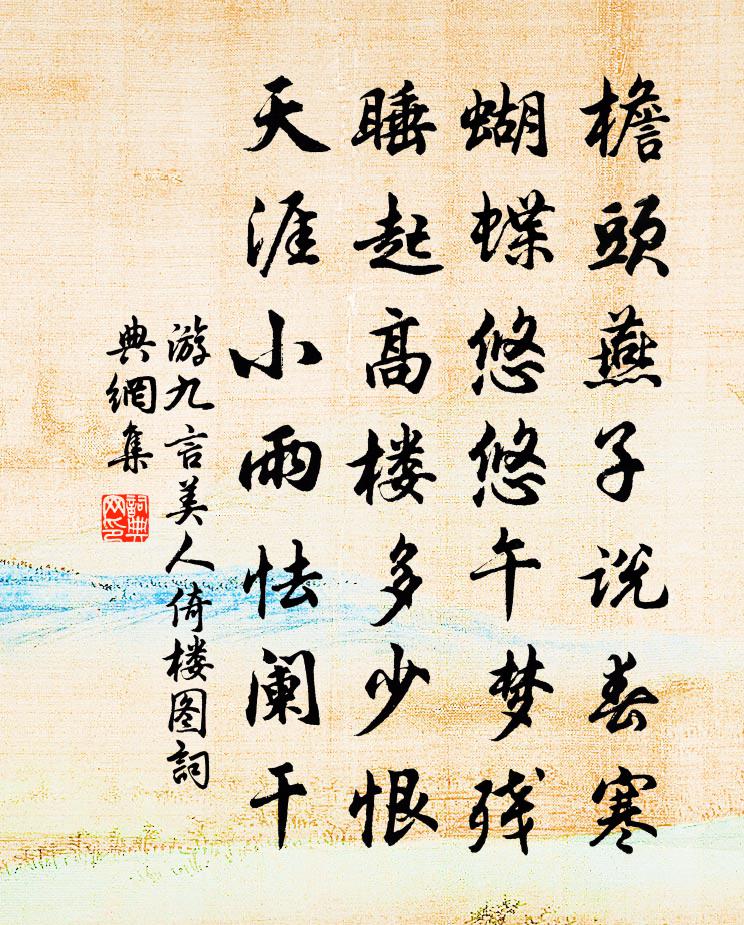 檐頭燕子说春寒
蝴蝶悠悠午梦残
睡起高楼多少恨
天涯小雨怯阑干
游九言美人倚楼图詞
典網集
詞典网印